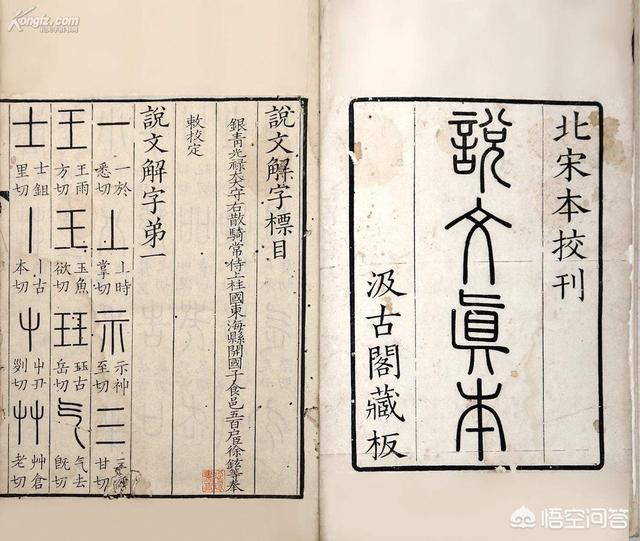 Kongfz.com
北宋本挍刊
說文眞本
汲古閣藏板
說文解字標目
銀青光祿大夫守右散騎常侍上柱國東海縣開國子食邑五百戶臣徐鉉等奉
敕挍定
說文解字弟一
一 一於悉切 丄 丄時掌切 示 示神至切 三 甘切
王 王雨方切 玉 玉魚欲切 玨 玨古岳切 气 气去旣切
士 士鉏里切 丨 丨古本切 屮 屮丑列切 艸 艸倉老切
悟空问答